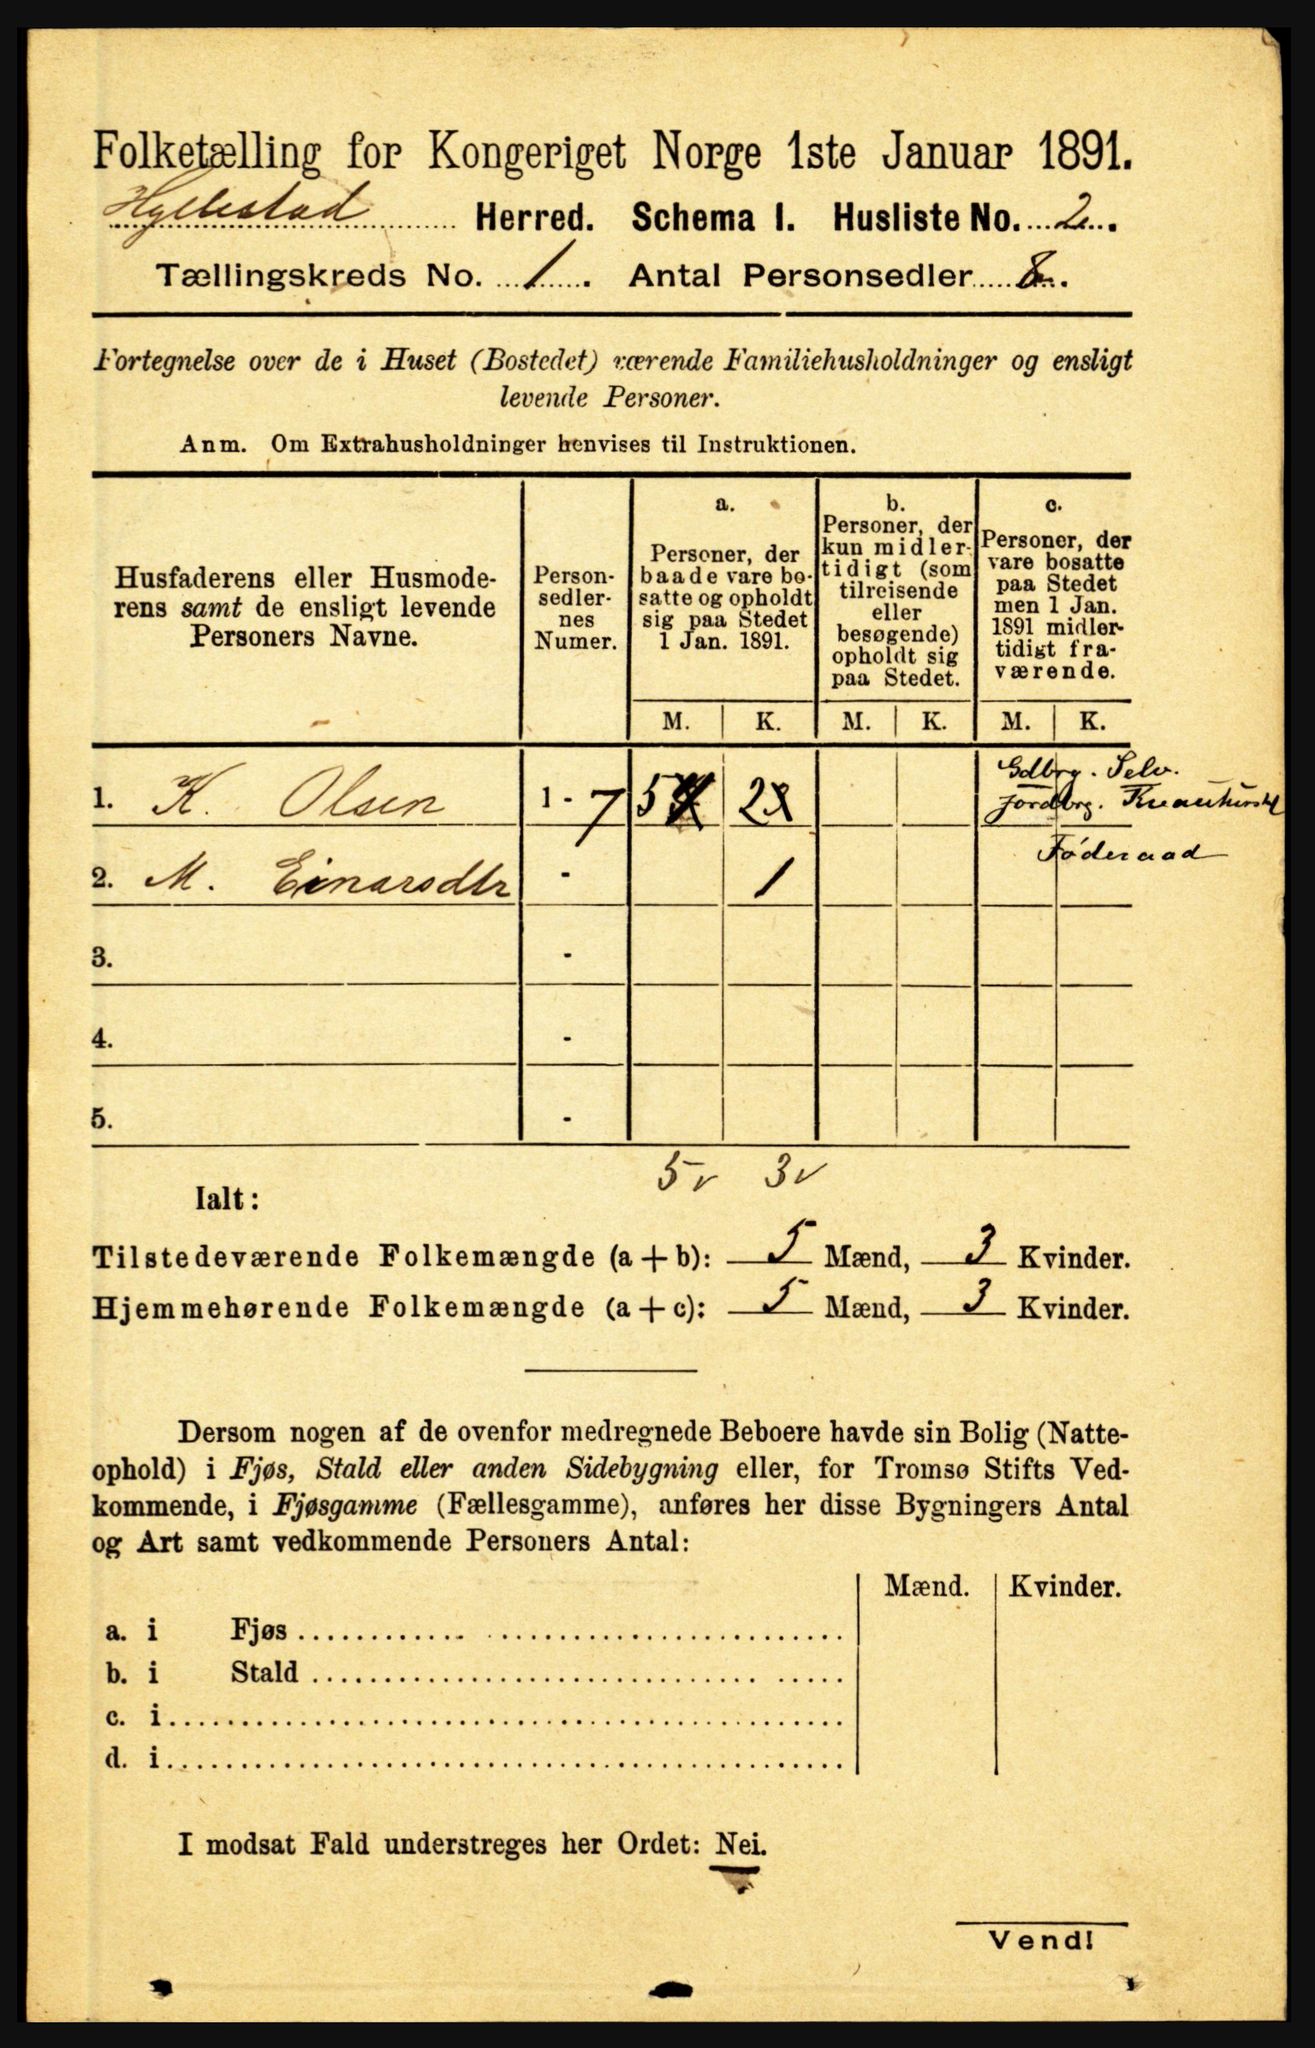 Folketælling for Kongeriget Norge 1ste Januar 1891.
Hyllestad Herred. Schema 1. Husliste No. 2.
Tællingskreds No. 1. Antal Personsedler 8.
Fortegnelse over de i Huset (Bostedet) værende Familiehusholdninger og ensligt
levende Personer.
Anm. Om Extrahusholdninger henvises til Instruktionen.
Husfaderens eller Husmode-
rens samt de ensligt levende
Personers Navne.
Person-
sedler-
nes
Numer.
a.
Personer, der
baade vare bo-
satte og opholdt
sig paa Stedet
1 Jan. 1891.
b.
Personer, der
kun midler-
tidigt (som
tilreisende
eller
besøgende)
opholdt sig
paa Stedet.
c.
Personer, der
vare bosatte
paa Stedet
men 1 Jan.
1891 midler-
tidigt fra-
værende.
M. K. M. K. M. K.
Gdbrg. Selv.
1. K. Olsen 1 - 7 5 2 jordbrg.
Føderaad
2. M. Einarsdtr - 1
3. -
4. -
5. -
5 v 3 v
Ialt:
Tilstedeværende Folkemængde (a + b): 5 Mænd, 3 Kvinder.
Hjemmehørende Folkemængde (a + c): 5 Mænd, 3 Kvinder.
Dersom nogen af de ovenfor medregnede Beboere havde sin Bolig (Natte-
ophold) i Fjøs, Stald eller anden Sidebygning eller, for Tromsø Stifts Ved-
kommende, i Fjøsgamme (Fællesgamme), anføres her disse Bygningers Antal
og Art samt vedkommende Personers Antal:
Mænd. Kvinder.
a. i Fjøs
b. i Stald
c. i
d. i
I modsat Fald understreges her Ordet: Nei.
Vend!